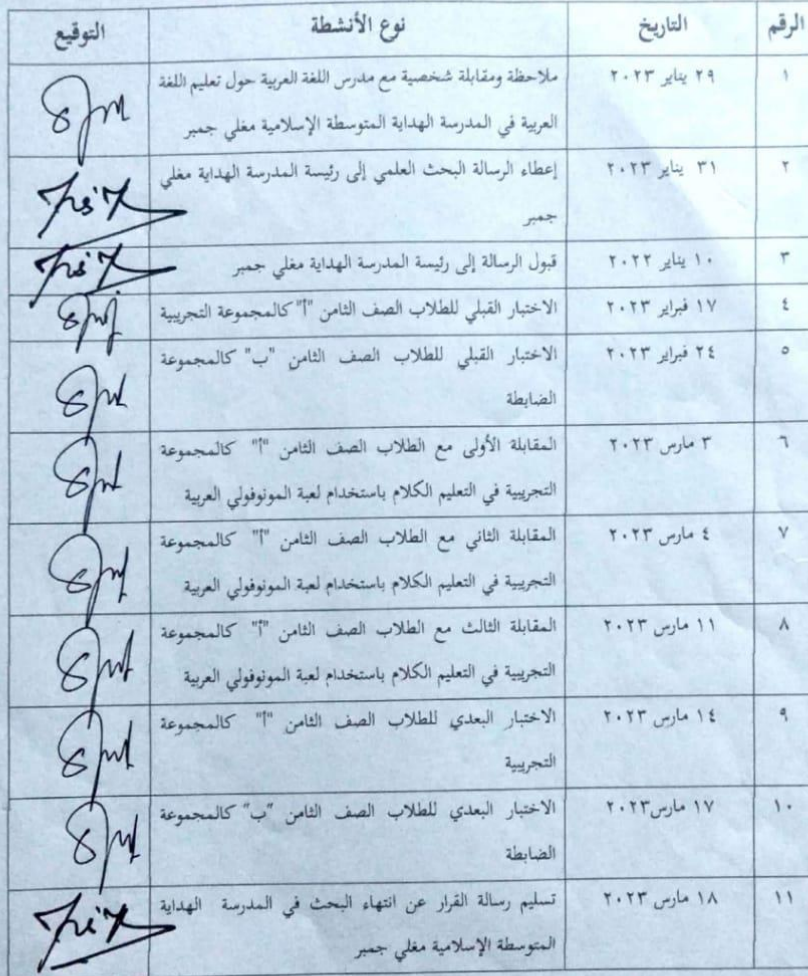 الرقم التاريخ نوع الأنشطة التوقيع
١ ٢٩ يناير ٢٠٢٣ ملاحظة ومقابلة شخصية مع مدرس اللغة العربية حول تعليم اللغة
العربية في المدرسة الهداية المتوسطة الإسلامية مغلي جمبر
٢ ٣١ يناير ٢٠٢٣ إعطاء الرسالة البحث العلمي إلى رئيسة المدرسة الهداية مغلي
جمبر
٣ ١٠ يناير ٢٠٢٢ قبول الرسالة إلى رئيسة المدرسة الهداية مغلي جمبر
٤ ١٧ فبراير ٢٠٢٣ الاختبار القبلي للطلاب الصف الثامن "أ" كالمجموعة التجريبية
٥ ٢٤ فبراير ٢٠٢٣ الاختبار القبلي للطلاب الصف الثامن "ب" كالمجموعة
الضابطة
٦ ٣ مارس ٢٠٢٣ المقابلة الأولى مع الطلاب الصف الثامن "أ" كالمجموعة
التجريبية في التعليم الكلام باستخدام لعبة المونوفولي العربية
٧ ٤ مارس ٢٠٢٣ المقابلة الثاني مع الطلاب الصف الثامن "أ" كالمجموعة
التجريبية في التعليم الكلام باستخدام لعبة المونوفولي العربية
٨ ١١ مارس ٢٠٢٣ المقابلة الثالث مع الطلاب الصف الثامن "أ" كالمجموعة
التجريبية في التعليم الكلام باستخدام لعبة المونوفولي العربية
٩ ١٤ مارس ٢٠٢٣ الاختبار البعدي للطلاب الصف الثامن "أ" كالمجموعة
التجريبية
١٠ ١٧ مارس٢٠٢٣ الاختبار البعدي للطلاب الصف الثامن "ب" كالمجموعة
الضابطة
١١ ١٨ مارس ٢٠٢٣ تسليم رسالة القرار عن انتهاء البحث في المدرسة الهداية
المتوسطة الإسلامية مغلي جمبر